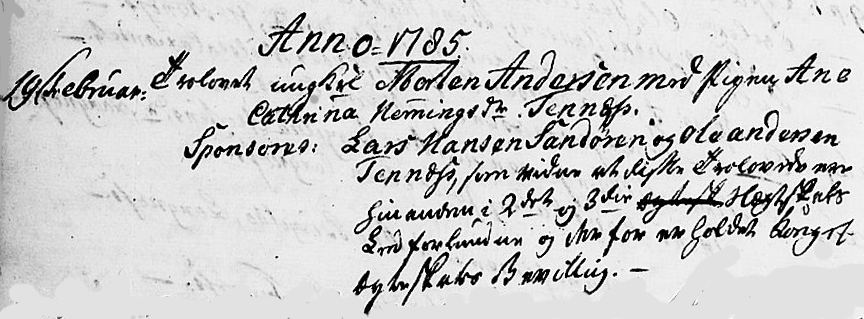 Anno = 1785.
19 Februar: Trolovet ungkrl Morten Andersen med Pigen Ane
Cathrina Hemingsdr Tennæss.
Sponsores: Lars Hansen Sandören og Ole andersen
Tennæss, som vidne at diske Trolovede ere
hinanden i 2det og 3die Slegtskabs
Leed forbundne og der for er holdet Kongel
Ægteskabs Bevilling. —